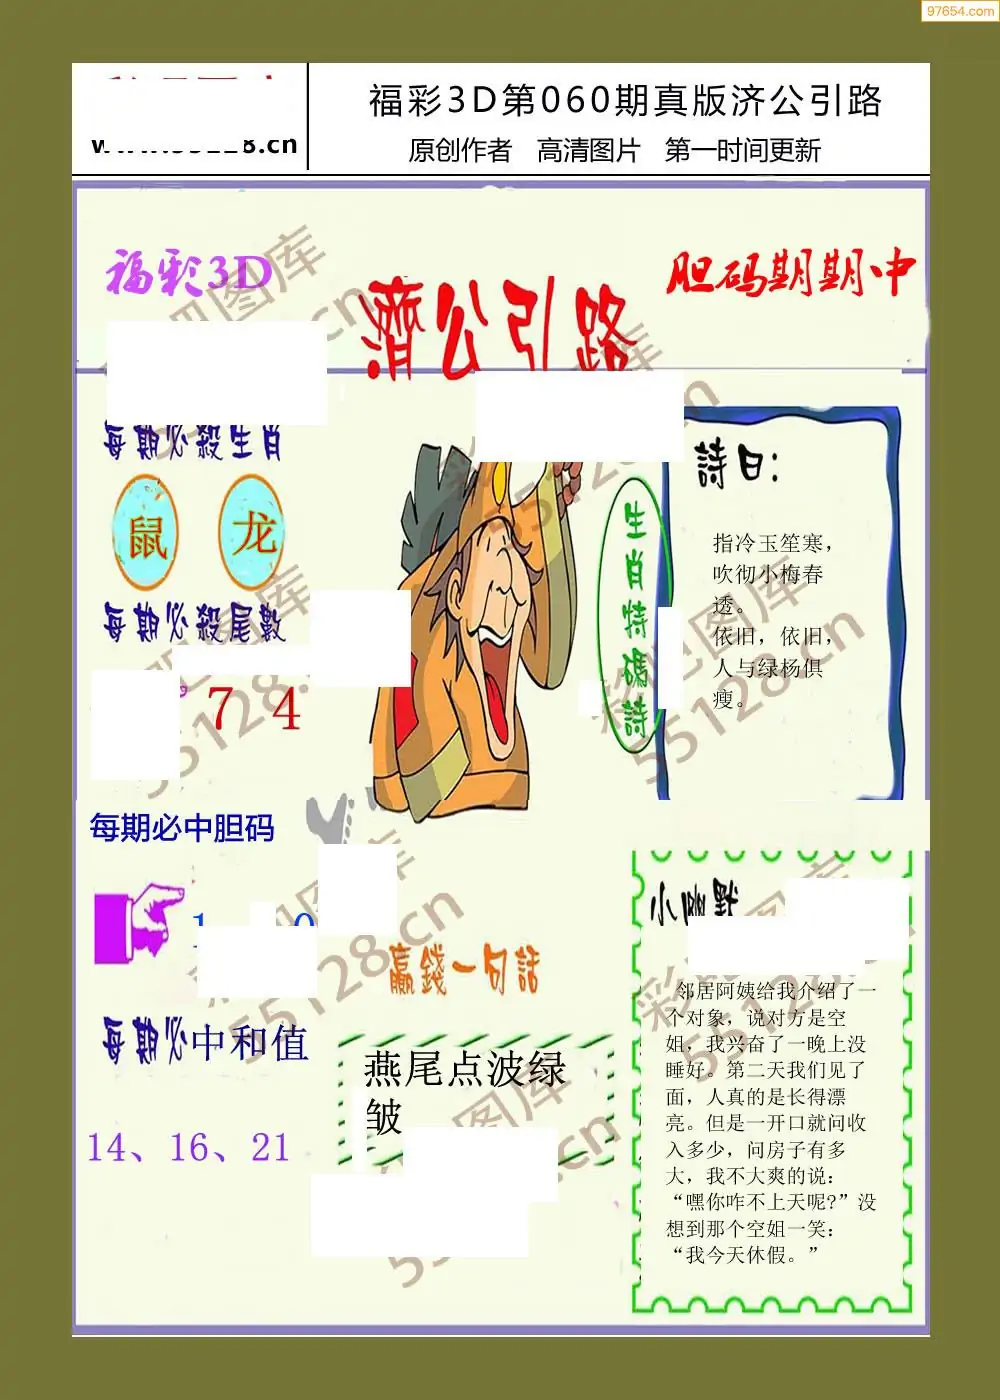 97654.com
福彩3D第060期真版济公引路
原创作者 高清图片 第一时间更新
福彩3D
濟公引路
胆码期期中
每期必殺生肖
鼠 龙
每期必殺尾數
7 4
生肖特碼詩
詩曰:
指冷玉笙寒，
吹彻小梅春
透。
依旧，依旧，
人与绿杨俱
瘦。
每期必中胆码
每期必中和值
14、16、21
赢錢一句話
燕尾点波绿
皱
小幽默
邻居阿姨给我介绍了一
个对象，说对方是空
姐，我兴奋了一晚上没
睡好。第二天我们见了
面，人真的是长得漂
亮。但是一开口就问收
入多少，问房子有多
大，我不大爽的说：
“嘿你咋不上天呢?”没
想到那个空姐一笑：
“我今天休假。”
彩吧图库
55128.cn